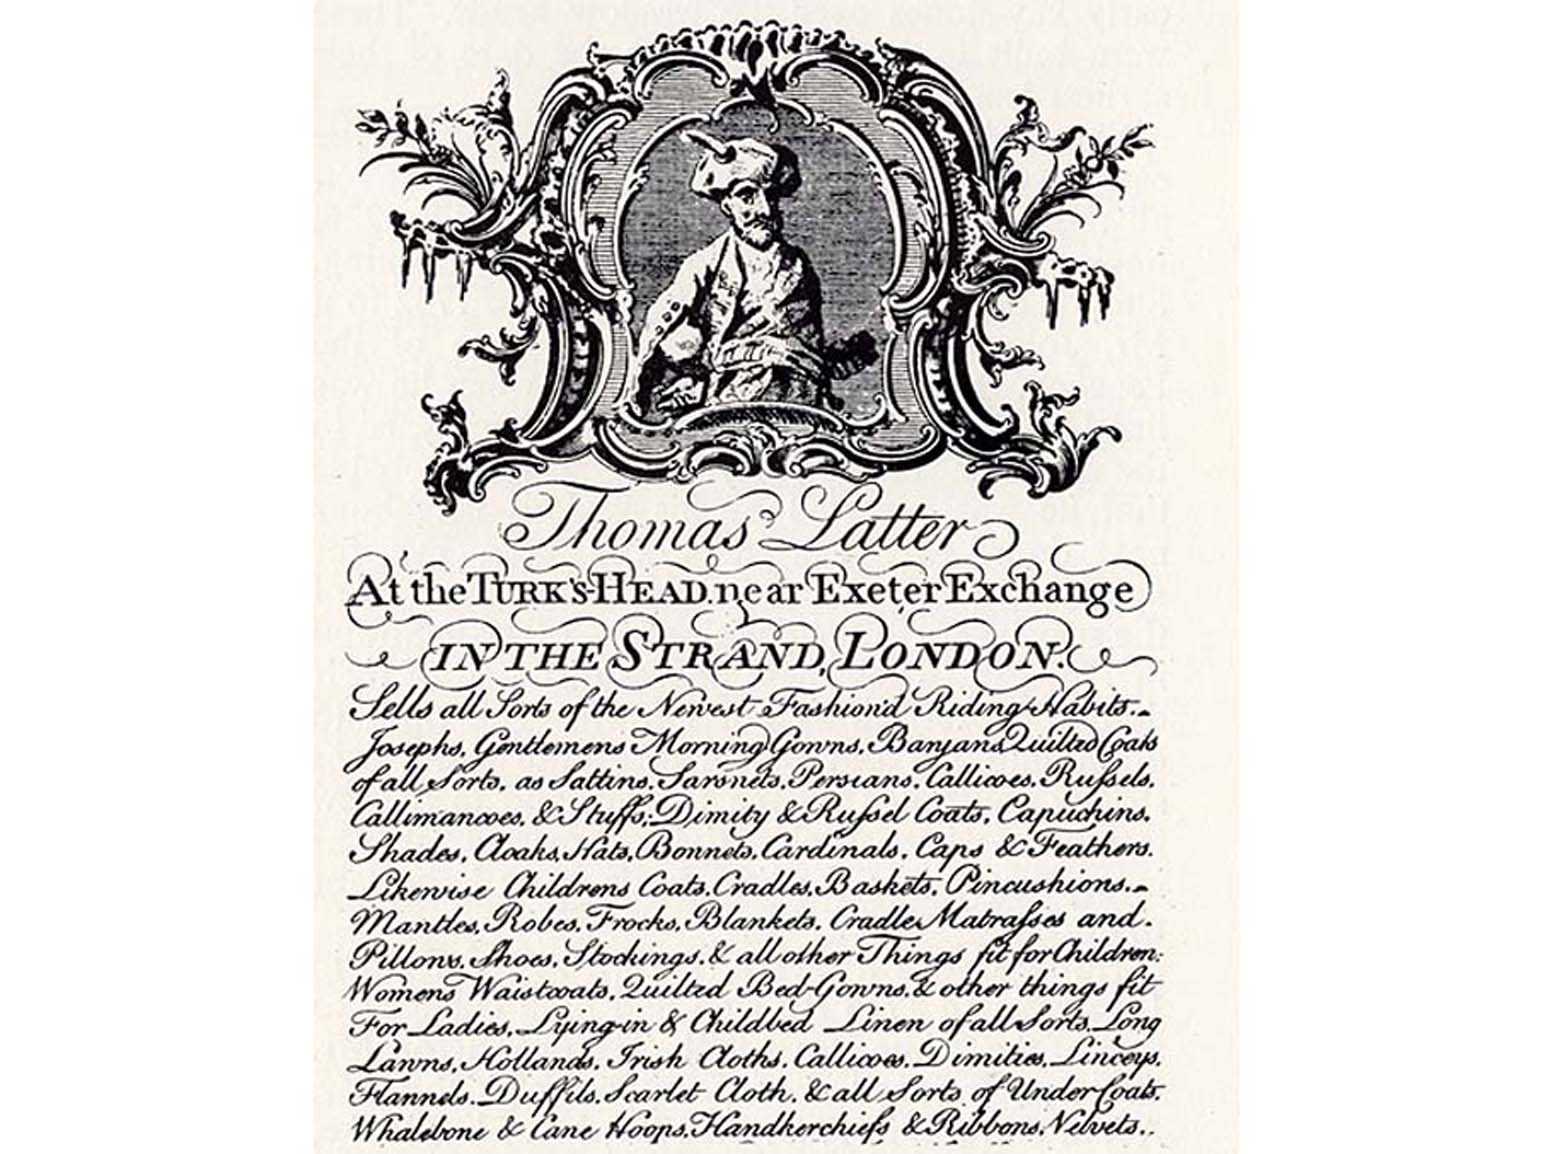 Thomas Latter
At the TURK'S-HEAD. near Exeter Exchange
IN THE STRAND, LONDON.
Sells all Sorts of the Newest Fashion'd Riding Habits.
Josephs, Gentlemens Morning Gowns, Banjans Quilted Coats
of all Sorts, as Sattins, Sarsnets, Persians, Callicoes, Rußels,
Callimancoes, & Stuffs; Dimity & Rußel Coats, Capuchins,
Shades, Cloaks, Hats, Bonnets, Cardinals, Caps & Feathers.
Likewise Childrens Coats, Cradles, Baskets, Pincushions,
Mantles, Robes, Frocks, Blankets, Cradle Matraßes and
Pillows, Shoes, Stockings, & all other Things fit for Children:
Womens Waistcoats, Quilted Bed-Gowns, & other things fit
For Ladies, Lying-in & Childbed Linen of all Sorts, Long
Lawns, Hollands, Irish Cloths, Callicoes, Dimities, Linceys,
Flannels, Duffils, Scarlet Cloth, & all Sorts of Under Coats,
Whalebone & Cane Hoops, Handkerchiefs & Ribbons, Velvets..